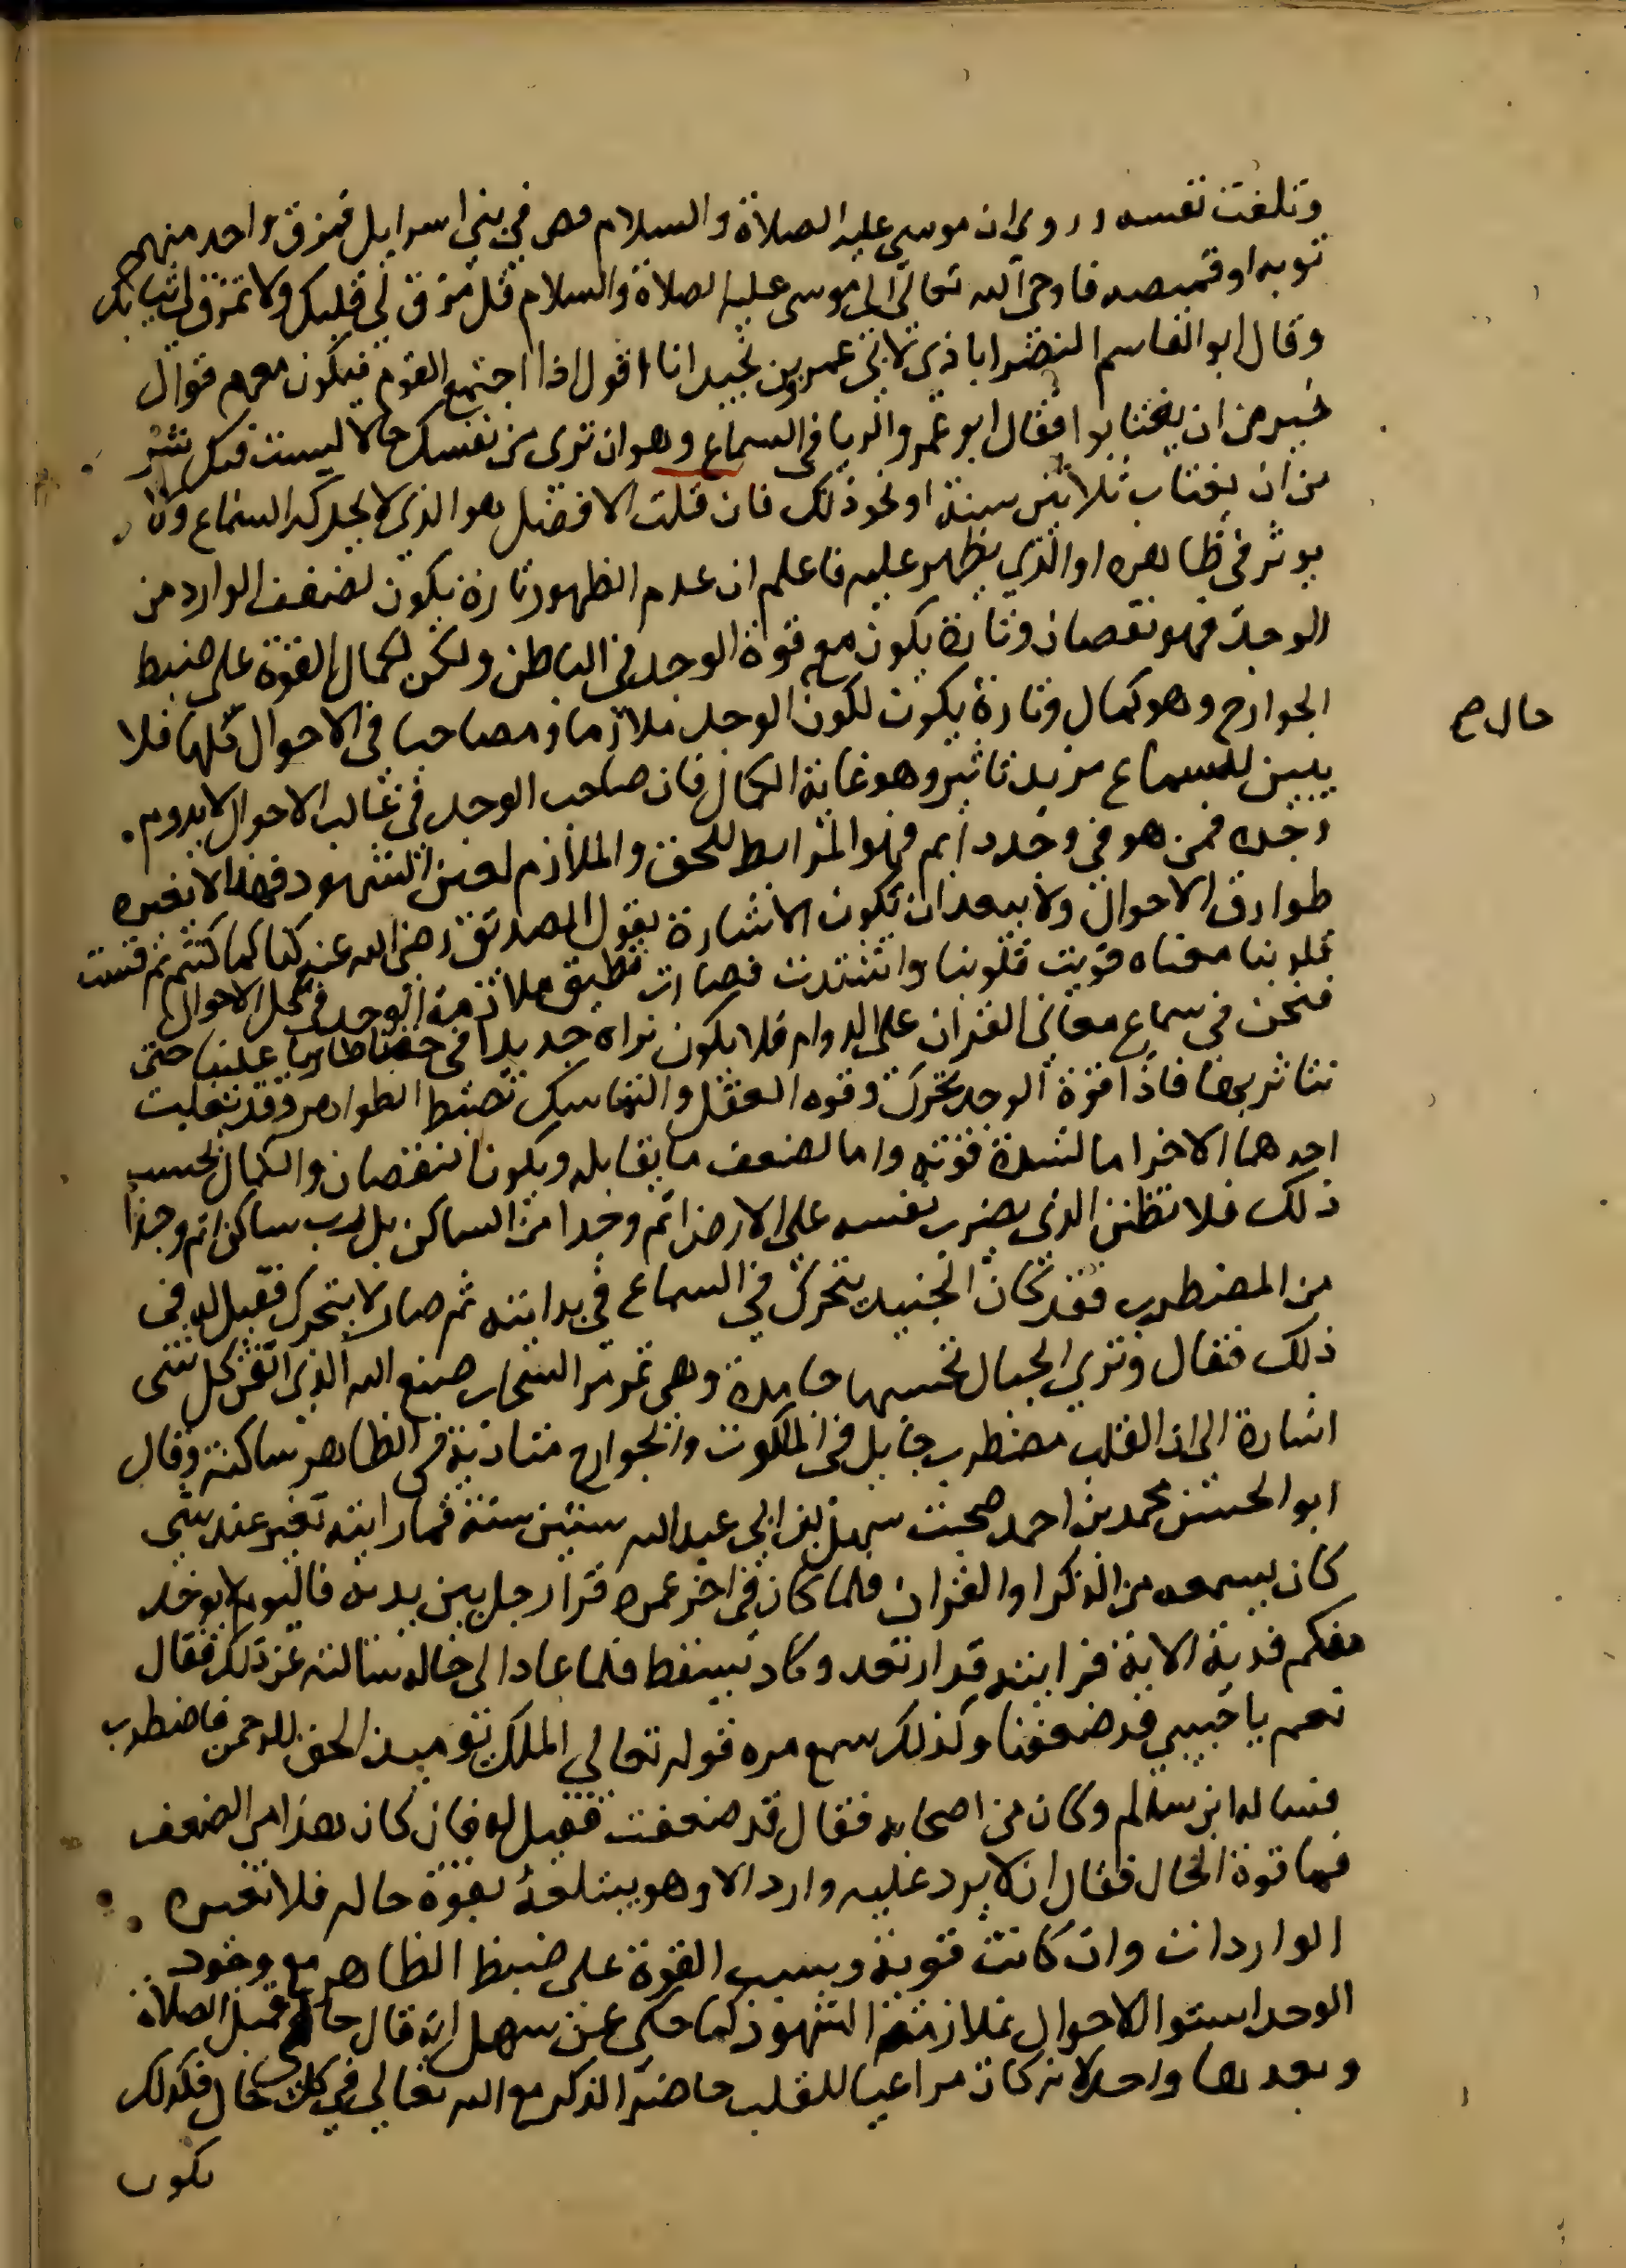 وتلفت نفسه وروي ان موسى عليه الصلاة والسلام قص في بني اسرايل فمزق واحد منهم
ثوبه او قميصه فاوحى الله تعالى الى موسى عليه الصلاة والسلام قل له مزق لي قلبك ولا تمزق لي ثيابك
وقال ابو القاسم النضراباذي لابي عمرو بن نجيد انا اقول اذا اجتمع القوم فيكون معهم قوال
خير من ان يغتابوا فقال ابو عمرو الريا في السماع وهو ان ترى من نفسك حالا ليست فيك شر
من ان يغتاب ثلاثين سنة او نحو ذلك فان قلت الافضل هو الذي لا يحركه السماع ولا
يوثر في ظاهره او الذي يظهر عليه فاعلم ان عدم الظهور تارة يكون لضعف الوارد من
الوجد فهو نقصان وتارة يكون مع قوة الوجد في الباطن ولكن لكمال القوة على ضبط
الجوارح وهو كمال وتارة يكون لكون الوجد ملازما ومصاحبا في الاحوال كلها فلا
يبين للسماع مزيد تاثير وهو غاية الكمال فان صاحب الوجد في غالب الاحوال لا يدوم
وجده فمن هو في وجد دايم فهو المرابط للحق والملازم لعين الشهود فهذا لا تغيره
طوارق الاحوال ولا يبعد ان تكون الاشارة بقول الصديق رضي الله عنه كنا كما كنتم ثم قست
قلوبنا معناه قويت قلوبنا واشتدت فصارت تطيق ملازمة الوجد في كل الاحوال
فنحن في سماع معاني القران على الدوام فلا يكون نراه جديدا في حقنا طاريا علينا حتى
نتاثر بها فاذا قوة الوجد تحرك وقوه العقل والتماسك تضبط الظواهر وقد تغلب
احدهما الاخر اما لشدة قوته واما لضعف ما يقابله ويكون النقصان والكمال بحسب
ذلك فلا تظنن الذي يضرب نفسه على الارض اتم وجدا من الساكن بل رب ساكن اتم وجدا
من المضطرب فقد كان الجنيد يتحرك في السماع في بدايته ثم صار لا يتحرك فقيل له في
ذلك فقال وترى الجبال تحسبها جامدة وهي تمر مر السحاب صنع الله الذي اتقن كل شي
اشارة الى ان القلب مضطرب جايل في الملكوت والجوارح متادبة في الظاهر ساكنة وقال
ابو الحسن محمد بن احمد صحبت سهل بن ابي عبد الله ستين سنة فما رايته تغير عند شي
كان يسمعه من الذكر او القران فلما كان في اخر عمره قرا رجل بين يديه فاليوم لا يوخد
منكم فدية الاية فرايته قد ارتعد وكاد يسقط فلما عاد الى حاله سالته عن ذلك فقال
نعم يا حبيبي قد ضعفنا وكذلك سمع مره قوله تعالي الملك يوميذ الحق للرحمن فاضطرب
فساله ابن سالم وكان من اصحابه فقال قد ضعفت فقيل له فان كان هذا من الضعف
فما قوة الحال فقال ان لا يرد عليه وارد الا وهو يبتلعه بقوة حاله فلا تغيره
الواردات وان كانت قوية وسبب القوة على ضبط الظاهر مع وجود
الوجد استوا الاحوال بملازمة الشهود كما حكي عن سهل انه قال حالي قبل الصلاة
وبعدها واحد لانه كان مراعيا للقلب حاضر الذكر مع الله تعالي في كل حال فكذلك
يكون
حال صح